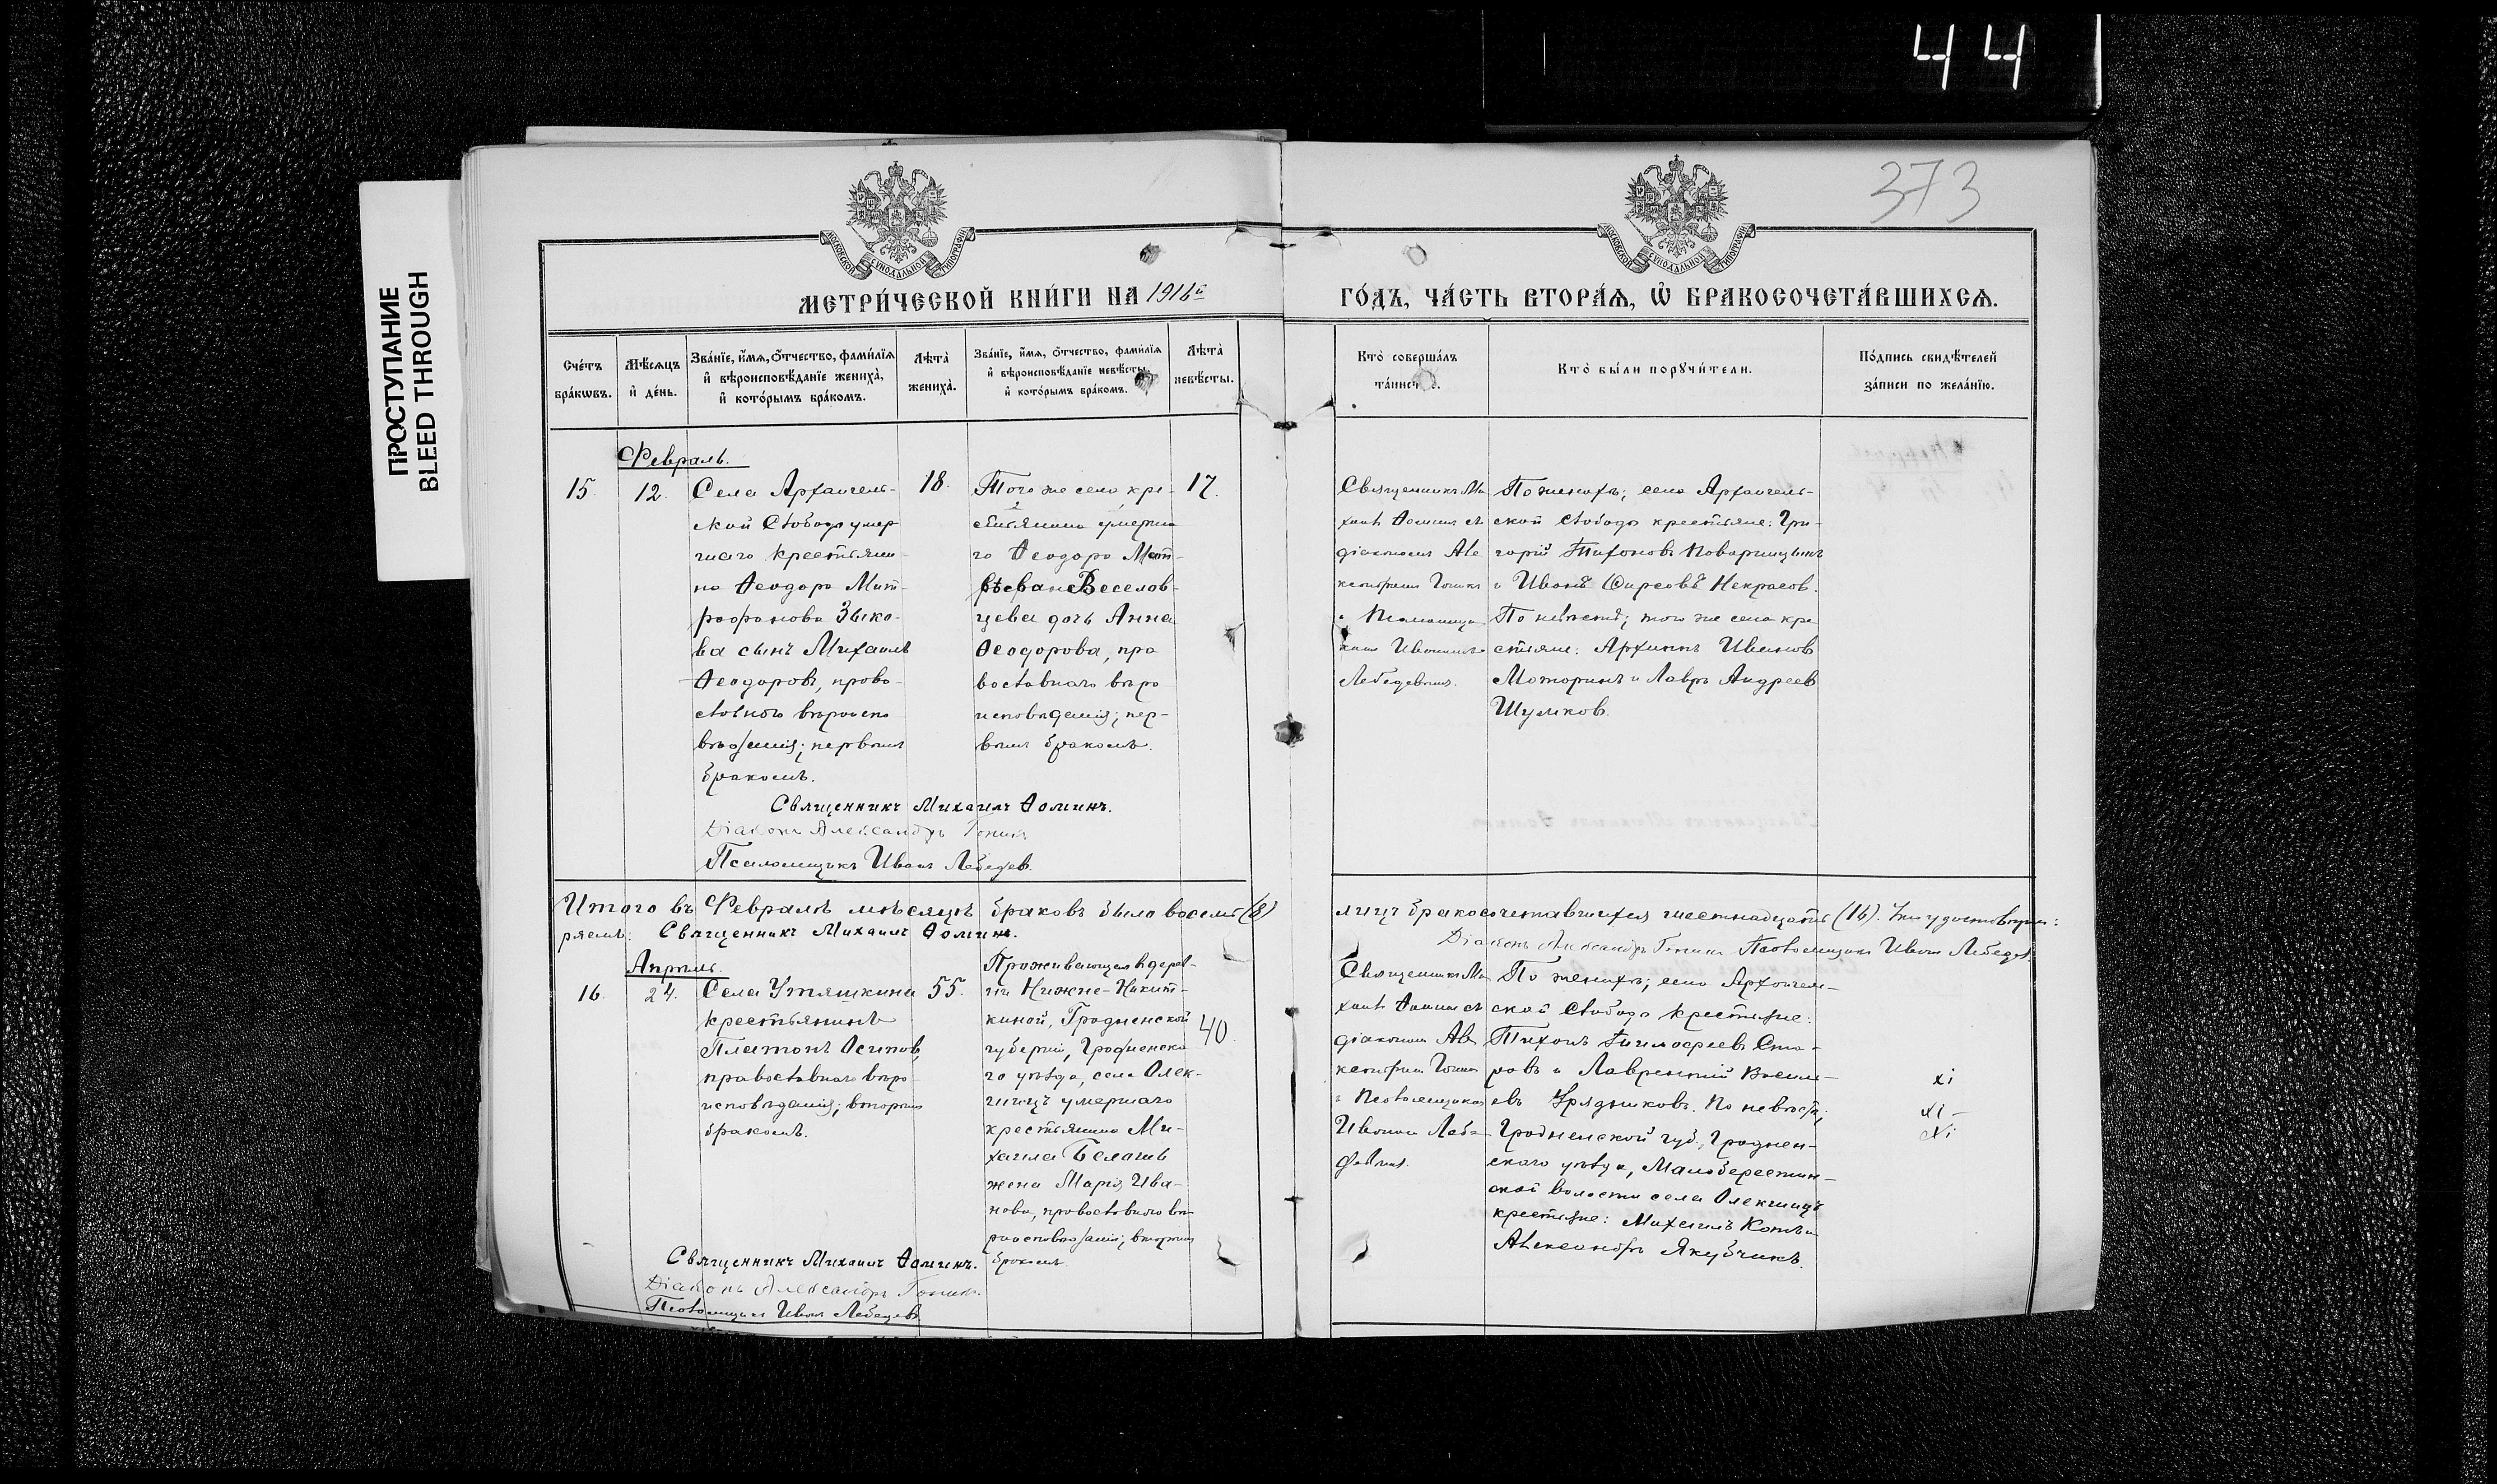 44
373
ПРОСТУПАНИЕ
BLEED THROUGH
МОСКОВСКОЙ СѴНОДАЛЬНОЙ ТИПОГРАФІИ
МОСКОВСКОЙ СѴНОДАЛЬНОЙ ТИПОГРАФІИ
МЕТРИ́ЧЕСКОЙ КНИ́ГИ НА 1916й
ГО́ДЪ, ЧА́СТЬ ВТОРА́Ѧ, Ѡ҆ БРАКОСОЧЕТА́ВШИХСѦ.
Сче́тъ
бра́кѡвъ.
Мѣ́сѧцъ
и҆ де́нь.
Зва́нїе, и҆́мѧ, ѻ҆́тчество, фами́лїѧ
и҆ вѣроисповѣ́данїе жениха̀,
и҆ кото́рымъ бра́комъ.
Лѣта̀
жениха̀.
Зва́нїе, и҆́мѧ, ѻ҆́тчество, фами́лїѧ
и҆ вѣроисповѣ́данїе невѣ́сты,
и҆ кото́рымъ бра́комъ.
Лѣта̀
невѣ́сты.
Кто̀ соверша́лъ
та́инство.
Кто̀ бы́ли порꙋчи́тели.
По́дпись свидѣ́телей
за́писи по жела́нїю.
Февраль.
15.
12.
Села Архангель-
ской Слободы умер
шаго крестьяни-
на Ѳеодора Мит-
рофанова Зыко-
ва сынъ Михаилъ
Ѳеодоровъ, право-
славнаго вѣроиспо
вѣданія; первымъ
бракомъ.
18.
Того же села кре-
стьянина умерша
го Ѳеодора Мат-
вѣева Веселов-
цева дочь Анна
Ѳеодорова, пра
вославнаго вѣро
исповѣданія; пер-
вымъ бракомъ.
17.
Священникъ Ми
хаилъ Ѳоминъ съ
діакономъ Але
ксандромъ Гонинъ
и Псаломщи
комъ Иваномъ
Лебедевымъ.
По женихѣ; села Архангель-
ской Слободы крестьяне: Гри-
горій Тихоновъ Поварницынъ
и Иванъ Фирсовъ Некрасов.
По невѣстѣ; того же села кре
стьяне: Архиппъ Иванов
Моторинъ и Лавръ Андреев
Шумков.
Священникъ Михаилъ Ѳоминъ.
Діаконъ Александръ Гонинъ
Псаломщикъ Иванъ Лебедев.
Итого въ Февралѣ мѣсяцѣ браковъ было восемь (8)
лицъ бракосочетавшихся шестнадцать (16).
ряемъ: Священникъ Михаилъ Ѳоминъ.
Діаконъ Александръ Гонинъ Псаломщикъ Иванъ Лебедев.
Апрѣль.
16.
24.
Села Утяшкина
крестьянинъ
Платонъ Осипов,
православнаго вѣро
исповѣданія; вторымъ
бракомъ.
55.
Проживающая в дерев-
ни Нижне-Никит-
киной, Гродненской
губерніи, Гродненска
го уѣзда, села Олек-
шицъ умершаго
крестьянина Ми-
хаила
жена Марія Ива-
нова, православнаго вѣ
роисповѣданія; вторымъ
бракомъ.
40.
Священникъ Ми
хаилъ Ѳоминъ съ
діакономъ Але
ксандромъ Гонинъ
и Псаломщикомъ
Иваномъ Лебе
девымъ.
По женихѣ; села Архангель-
ской Слободы крестьяне:
Тихонъ Тимоѳеевъ Ста-
ровъ и Лаврентій Василь-
евъ Урядниковъ. По невѣстѣ;
Гродненской губ., Гроднен-
скаго уѣзда, Малоберестин-
ской волости села Олекшицъ
крестьяне: Михаилъ Котъ и
Александръ Якубчикъ.
Священникъ Михаилъ Ѳоминъ.
Діаконъ Александръ Гонинъ.
Псаломщикъ Иванъ Лебедев